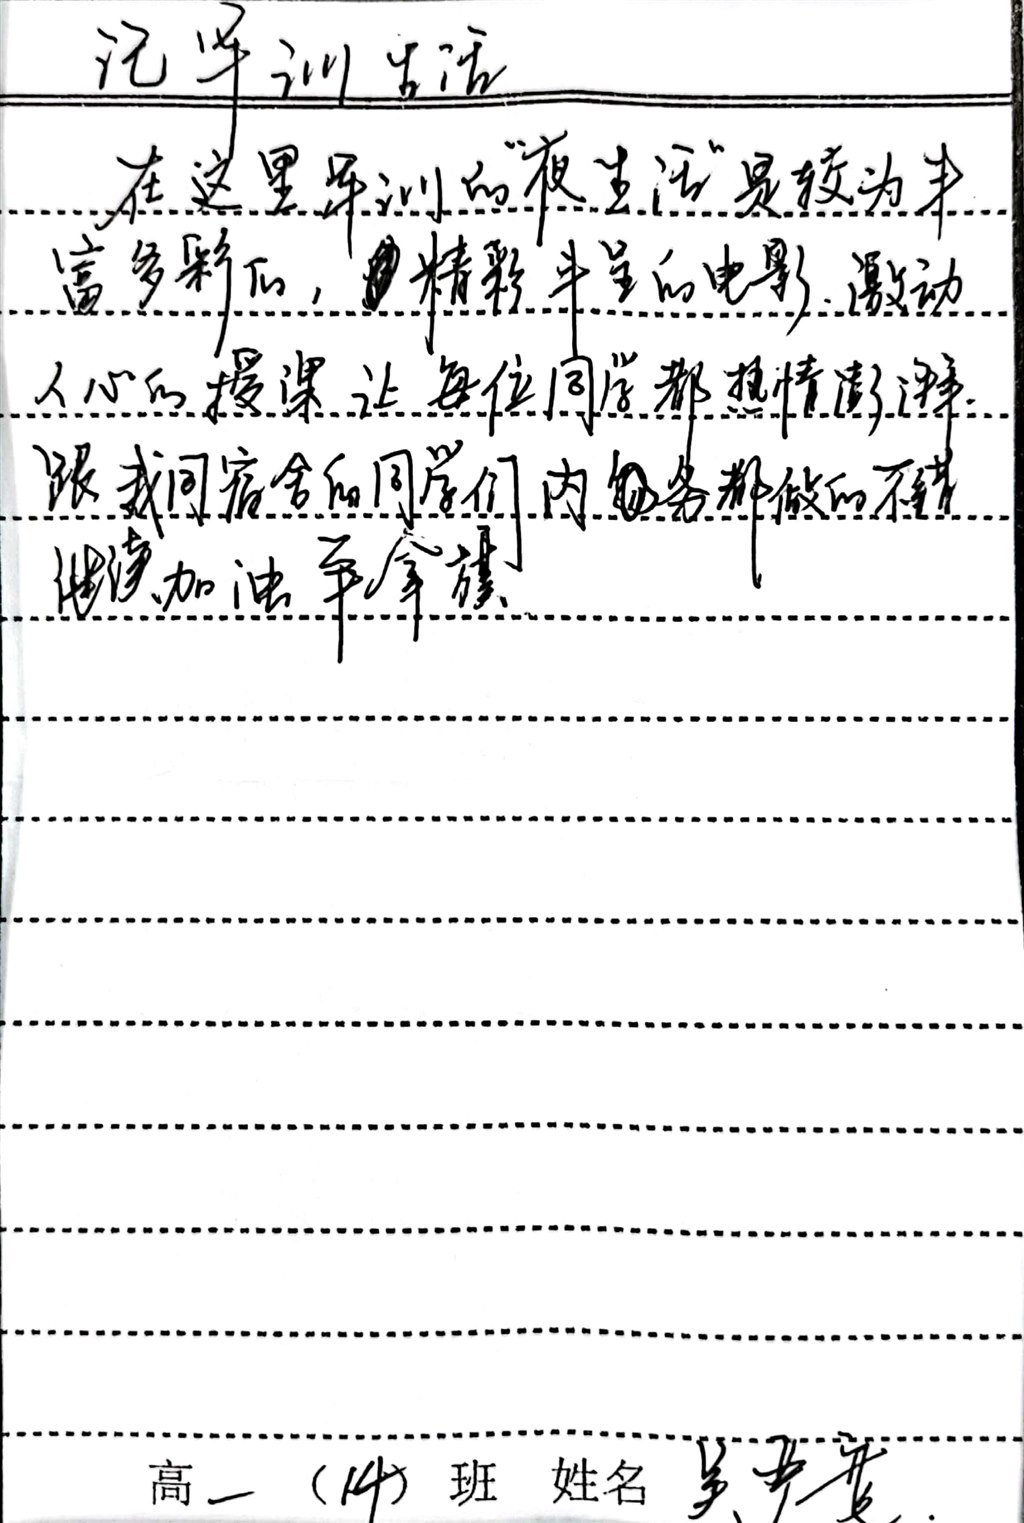 记军训生活
在这里军训的"夜生活"是较为丰
富多彩的，精彩丰呈的电影.激动
人心的授课让每位同学都热情澎湃.
跟我同宿舍的同学们内务都做的不错
继续加油 争拿旗.
高一（14）班 姓名 吴